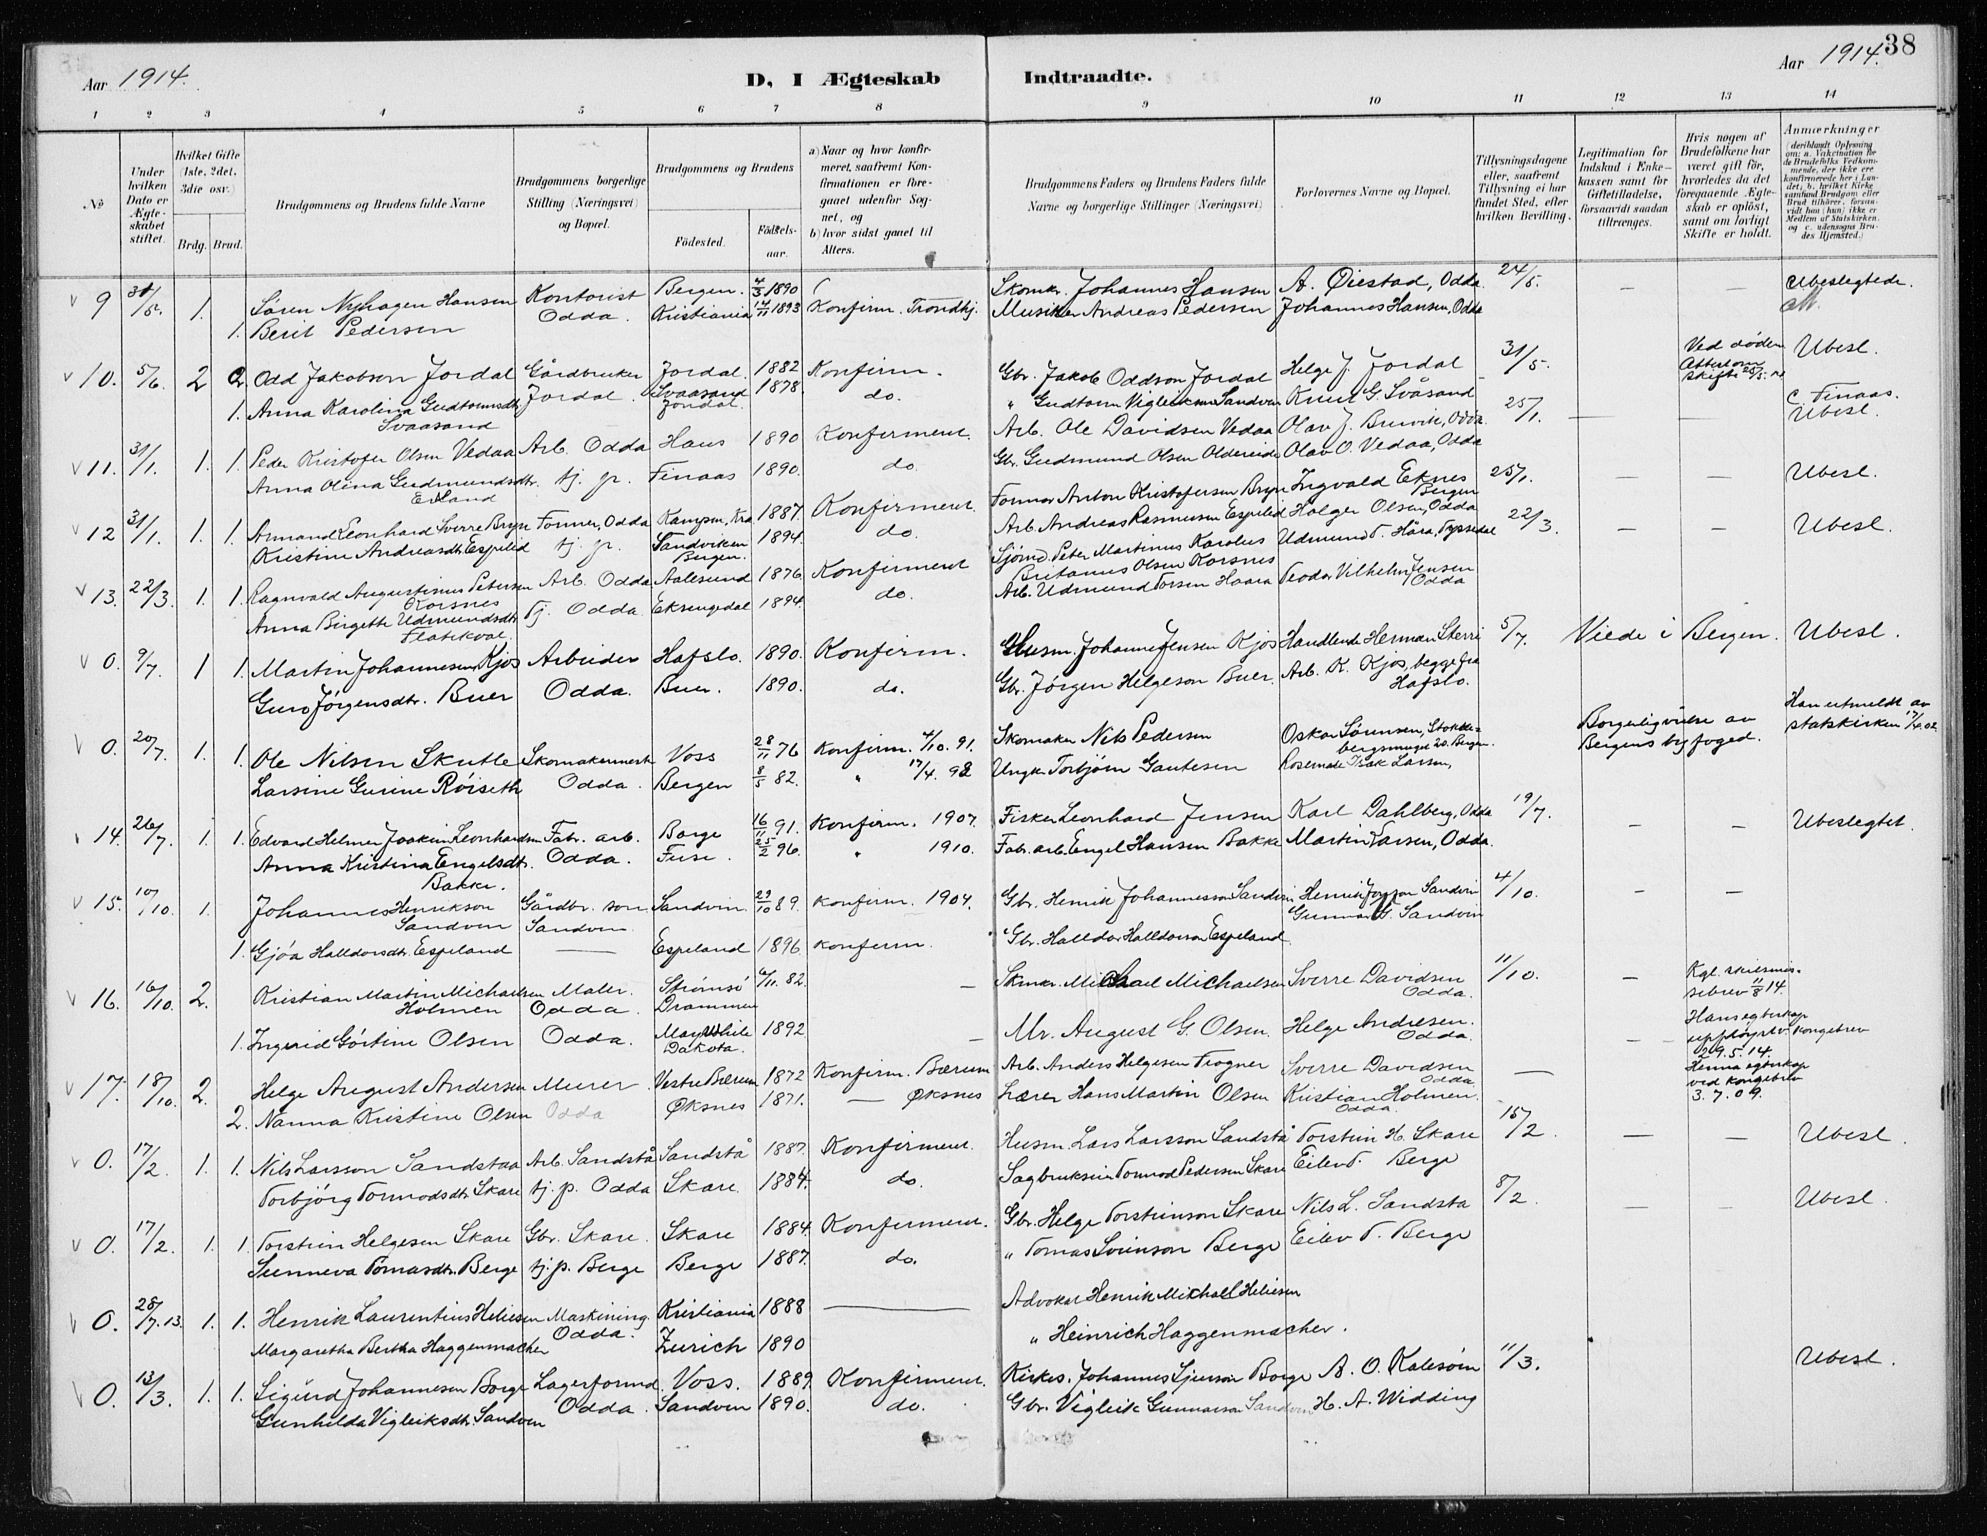 38
Aar 1914.
D, I Ægteskab Indtraadte.
Aar 1914.
1 2 3 4 5 6 7 8 9 10 11 12 13 14
No
Under hvilken Dato er Ægteskabet stiftet.
Hvilket Gifte (1ste, 2det, 3die osv.)
Brdg. Brud.
Brudgommens og Brudens fulde Navne
Brudgommens borgerlige Stilling (Næringsvei) og Bopæl.
Brudgommens og Brudens
Födested.
Födselsaar.
a) Naar og hvor konfirmeret, saafremt Konfirmationen er foregaaet udenfor Sognet, og
b) hvor sidst gaaet til Alters.
Brudgommens Faders og Brudens Faders fulde Navne og borgerlige Stillinger (Næringsvei)
Forlovernes Navne og Bopæl.
Tillysningsdagene eller, saafremt Tillysning ei har fundet Sted, efter hvilken Bevilling.
Legitimation for Indskud i Enkekassen samt for Giftetilladelse, forsaavidt saadan tiltrænges.
Hvis nogen af Brudefolkene har været gift før, hvorledes da det foregaaende Ægteskab er oplöst, samt om lovligt Skifte er holdt.
Anmærkninger (deriblandt Oplysning om: a. Vakcination for de Brudefolks Vedkommende, der ikke ere konfirmerede her i Landet; b. hvilket Kirkesamfund Brudgom eller Brud tilhörer, forsaavidt han (hun) ikke er Medlem af Statskirken, og c. udensogns Brudes Hjemsted.)
9 31/5. 1. Søren Nyhagen Hansen Kontorist Bergen. 4/3 1890 Skomkr. Johannes Hansen A. Øiestad, Odda 24/5. — — Ubeslegtede.
1. Berit Pedersen Odda. Kristiania 14/11 1893 Konfirm. Trondhj. Musiker Andreas Pedersen Johannes Hansen, Odda
10. 5/6. 2 Odd Jakobson Jordal Gårdbruker Jordal. 1882 Konfirm. Gbr. Jakob Oddson Jordal Helge J. Jordal 31/5. Ved døden Ubesl.
1. Anna Karolina Gudtormsdtr. Svaasand Jordal. Svaasand Jondal. 1878. do. " Gudtorm Vigleiksson Sandven Knut G Svåsand
11. 31/1. 1. 1. Peder Kristofer Olsen Vedaa Arb. Odda Haus 1890 Konfirmeret. Arb. Ole Davidsen Vedaa Olav J. Buvik, Odda 25/1. — — c Finaas. Ubesl.
Anna Olina Gudmundsdtr. Eiland tj. p. Finaas 1890. do. Gbr. Gudmund Olsen Oldereide Olav O. Vedaa, Odda
12 31/1. 1. 1. Armand Leonhard Sverre Bryn Former, Odda Kampen, Kra 1887. Konfirmeret Former Anton Kristofersen Bryn Ingvald Eknes Bergen 25/1. — — Ubesl.
Kristine Andreasdtr. Espelid tj. p. Sandviken Bergen. 1894. do. Arb. Andreas Rasmussen Espelid Holger Olsen, Odda
13. 22/3. 1. 1. Ragnvald Augustinus Petersen Korsnes Arb. Odda Aalesund 1876. Konfirmeret Sjømd. Peter Martinus Karolus Britanus Olsen Korsnes Udmund T. Håra, Tyssedal 22/3. — — Ubesl.
Anna Birgitte Udmundsdtr. Flatekval. Tj. Odda Eksingedal 1894. do. Arb. Udmund Torsen Haara Teodor Vilhelm Jensen Odda
0. 9/7. 1 1. Martin Johannesen Kjos Arbeider Hafslo. 1890. Konfirm. Husm. Johannes Jensen Kjos Handlende Herman Sterri 5/7. Viede i Bergen. Ubesl.
Guro Jørgensdtr. Buer Odda. Buer. 1890. do. Gbr. Jørgen Helgeson Buer. Arb. K. Kjos, begge fra Hafslo.
0. 20/7. 1. 1. Ole Nilsen Skutle Skomakermestr Voss 28/11 76 Konfirm. 4/10. 91. Skomaker Nils Pedersen Oskar Sørensen, Bergen. Borgerlig vielse av Bergens byfoged. Han utmeldt av statskirken 17/4.02.
Larsine Gurine Røiseth Odda. Bergen 8/5 82. " 17/4. 98 Ungk. Torbjørn Gautesen Isak Larsen,
14. 26/7. 1. 1. Edvard Helmer Joakim Leonhardsen Fabr. arb. Borge 16/11 91. Konfirm. 1907. Fisker Leonhard Jensen Karl Dahlberg, Odda 19/7. — — Ubeslegtet.
Anna Kristina Engelsdtr. Bakke. Odda. Fuse. 25/2 96. " 1910. Fabr. arb. Engel Hansen Bakke Martin Larsen, Odda.
15. 10/10. 1. Johannes Henrikson Sandven Gårdbr. son Sandven Sandvin. 29/10 89. Konfirm. 1904. Gbr. Henrik Johannesson Sandvin Henrik Sandvin 4/10. — —
Gunnar G. Sandvin
1. Gjøa Halldorsdtr. Espeland — Espeland 1896 Konfirm. Gbr. Halldor Halldorson Espeland
16. 16/10. 2. Kristian Martin Michaelsen Holmen Maler. Odda Strømsø Drammen 6/11. 82. — Skmkr. Michael Michaelsen Sverre Davidsen Odda. 11/10. — Kgl. skilsmissebrev 11/8 14.
1. Ingerid Gørtine Olsen Odda. Dakota. 1892 — Mr. August G. Olsen. Helge Andresen. Odda. — Hans egteskap v. kongebrev 29.5.14.
17. 18/10. 2. Helge August Andersen Murer Vestre Bærum 1872 Konfirm. Bærum Arb. Anders Helgesen Frogner Sverre Davidsen Odda. — Hennes egteskap ved kongebrev 3.7.09.
2. Nanna Kristine Olsen Odda Øksnes 1871. — Øksnes Lærer Hans Martin Olsen Kristian Holmen. Odda.
0. 17/2. 1. 1. Nils Larsson Sandstaa Arb. Sandstå Sandstå 1887. Konfirmeret. Husm. Lars Larsson Sandstå Torstein H. Skare 15/2. — — Ubesl.
Torbjörg Tormodsdtr. Skare tj. p. Odda Skare. 1884. do. Sagbrukseier Tormod Pedersen Skare Eilev T. Berge
0. 17/2. 1. 1. Torstein Helgesen Skare Gbr. Skare. Skare 1884. Konfirmeret. Gbr. Helge Torsteinson Skare Nils L. Sandstå 8/2 — — Ubesl.
Sunneva Tomasdtr. Berge tj. p. Berge Berge 1887. do. " Tomas Sveinson Berge Eilev T. Berge
0. 28/7.13. 1. 1. Henrik Laurentius Heliesen Maskining. Odda. Kristiania 1888 — Advokat Henrik Michael Heliesen
Margaretha Bertha Haggenmacher Zurich 1890 " Heinrich Haggenmacher.
0. 13/3. 1. 1. Sigurd Johannesen Borge Lagerformd. Voss. 1889. Konfirmeret. Kirkes. Johannes Borge A. O. Kalesøin 11/3. Ubesl.
Gunhilda Vigleiksdtr. Sandven Odda. Sandven 1890. do. Gbr. Vigleik Gunnarson Sandven H. A. Widding